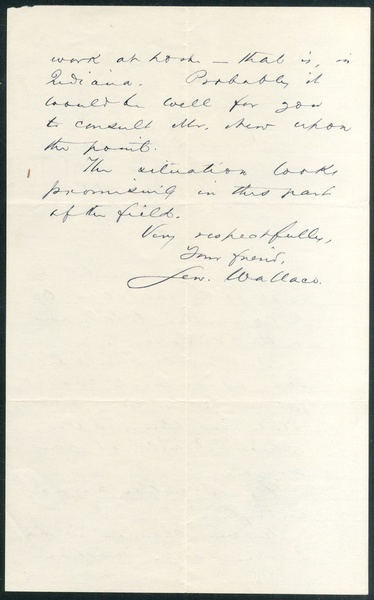 work at home — that is, in
Indiana. Probably it
would be well for you
to consult Mr. New upon
the point.
The situation looks
promising in this part
of the field.
Very respectfully,
Your friend,
Lew. Wallace.